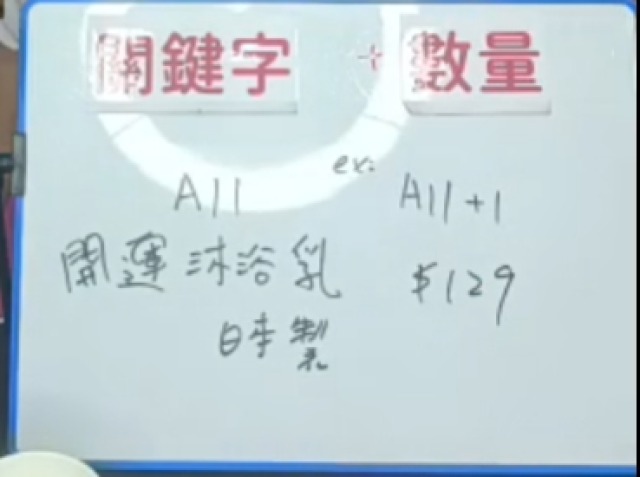 關鍵字 + 數量
ex:
A11 A11+1
開運沐浴乳 $129
日本製